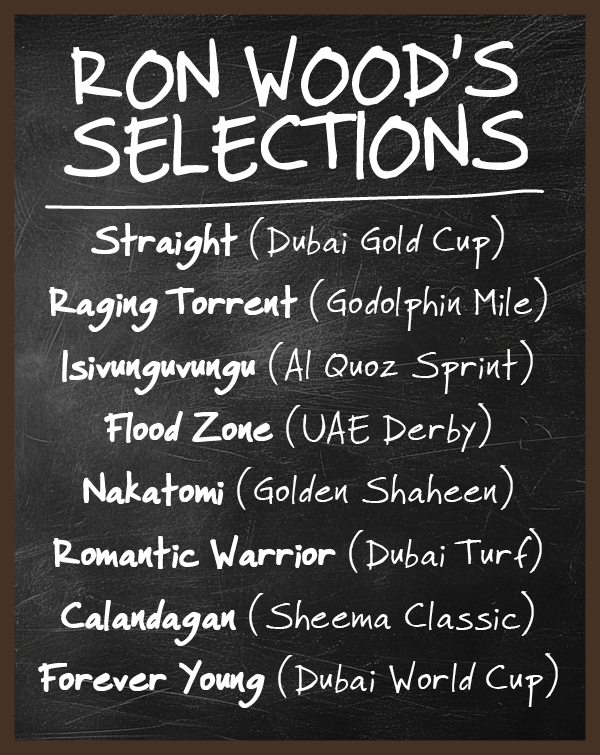 RON WOOD'S
SELECTIONS
Straight (Dubai Gold Cup)
Raging Torrent (Godolphin Mile)
Isivunguvungu (Al Quoz Sprint)
Flood Zone (UAE Derby)
Nakatomi (Golden Shaheen)
Romantic Warrior (Dubai Turf)
Calandagan (Sheema Classic)
Forever Young (Dubai World Cup)